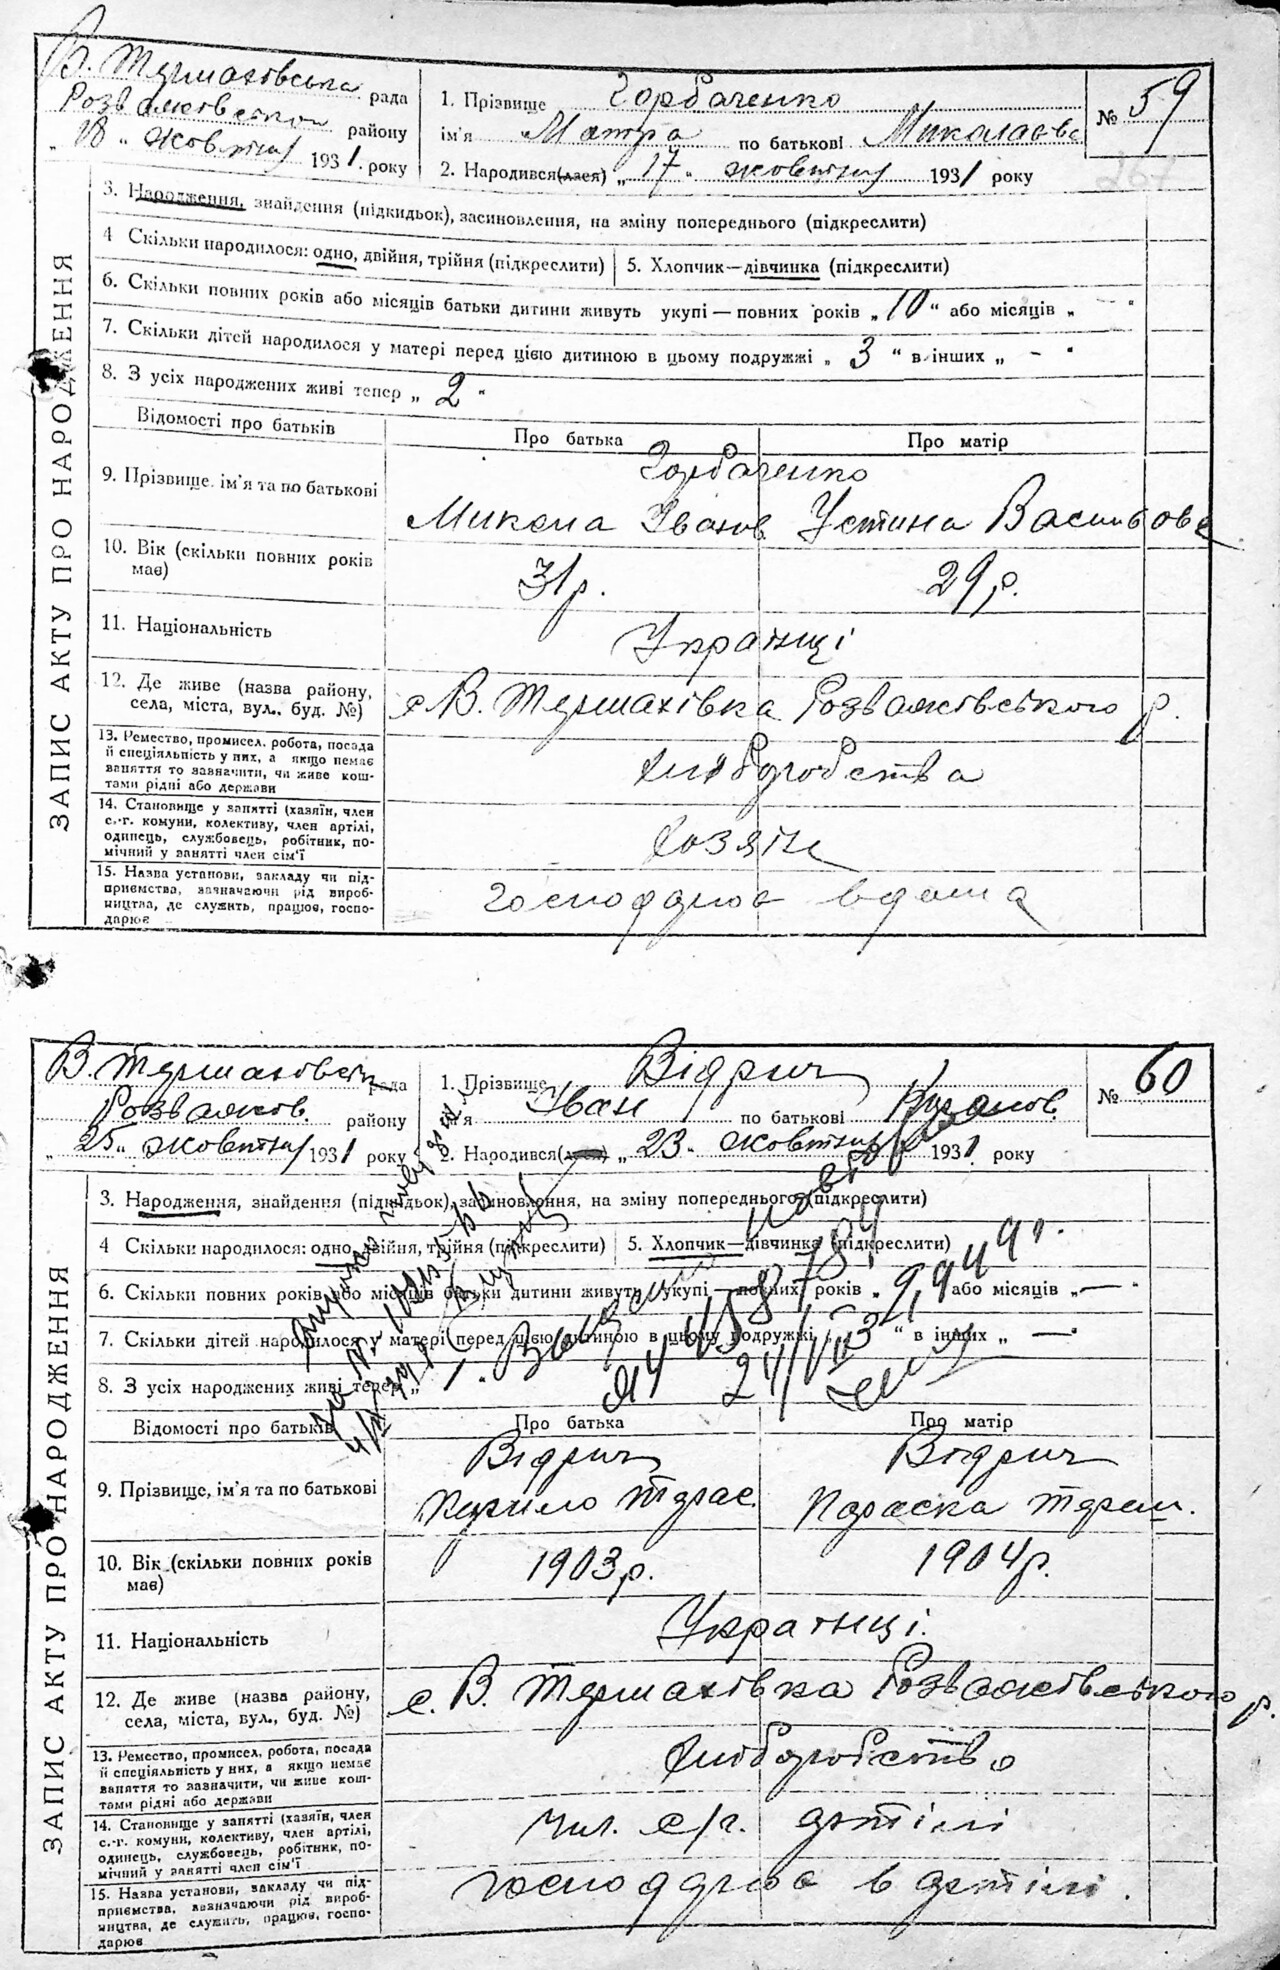 В. Термахівська рада
Розважівськог району
„ 18 „ жовтня 1931. року
1. Прізвище Горбаченко
ім'я Мотря по батькові Миколаєвс
2. Народився(лася) „ 17 „ жовтня 1931 року
№ 59
267
ЗАПИС АКТУ ПРО НАРОДЖЕННЯ
3. Народження, знайдення (підкидьок), засиновлення, на зміну попереднього (підкреслити)
4 Скільки народилося: одно, двійня, трійня (підкреслити)
5. Хлопчик—дівчинка (підкреслити)
6. Скільки повних років або місяців батьки дитини живуть укупі — повних років „ 10 “ або місяців „ — “
7. Скільки дітей народилося у матері перед цією дитиною в цьому подружжі „ 3 “ в інших „ - “
8. З усіх народжених живі тепер „ 2 “
Відомості про батьків
Про батька
Про матір
9. Прізвище, ім'я та по батькові
Горбаченко
Микола Іванов Устина Васильовс
10. Вік (скільки повних років має)
31р. 29р.
11. Національність
Українці
12. Де живе (назва району, села, міста, вул., буд. №)
с В. Термахівка Розважівського р.
13. Ремество, промисел, робота, посада
й спеціяльність у них, а якщо немає
заняття то зазначити, чи живе кош-
тами рідні або держави
хліборобства
14. Становище у занятті (хазяїн, член
с.-г. комуни, колективу, член артілі,
одинець, службовець, робітник, по-
мічний у занятті член сім'ї
хозяїн
15. Назва установи, закладу чи під-
приємства, зазначаючи рід вироб-
ництва, де служить, працює, госпо-
дарює
господарює вдома
В. Термаховськ рада
Розважов. району
„ 25 „ жовтня 1931 року
1. Прізвище Відрич
ім'я Іван по батькові
2. Народився „ 23 „ жовтня 1931 року
№ 60
ЗАПИС АКТУ ПРО НАРОДЖЕННЯ
3. Народження, знайдення (підкидьок), засиновлення, на зміну попереднього (підкреслити)
4 Скільки народилося: одно, двійня, трійня (підкреслити)
5. Хлопчик—дівчинка (підкреслити)
6. Скільки повних років або місяців батьки дитини живуть укупі — повних років „ 9 „ або місяців „ — “
7. Скільки дітей народилося у матері перед цією дитиною в цьому подружжі „ 3 “ в інших „ — “
8. З усіх народжених живі тепер „
Відомості про батьків
Про батька
Про матір
9. Прізвище, ім'я та по батькові
Відрич Відрич
Тарас. Параска
10. Вік (скільки повних років має)
1903р. 1904р.
11. Національність
Українці.
12. Де живе (назва району, села, міста, вул., буд. №)
с. В. Термахівка Розважівського р.
13. Ремество, промисел, робота, посада
й спеціяльність у них, а якщо немає
заняття то зазначити, чи живе кош-
тами рідні або держави
хліборобство
14. Становище у занятті (хазяїн, член
с.-г. комуни, колективу, член артілі,
одинець, службовець, робітник, по-
мічний у занятті член сім'ї
чл. с/г. артілі
15. Назва установи, закладу чи під-
приємства, зазначаючи рід вироб-
ництва, де служить, працює, госпо-
дарює
господарює в артілі.